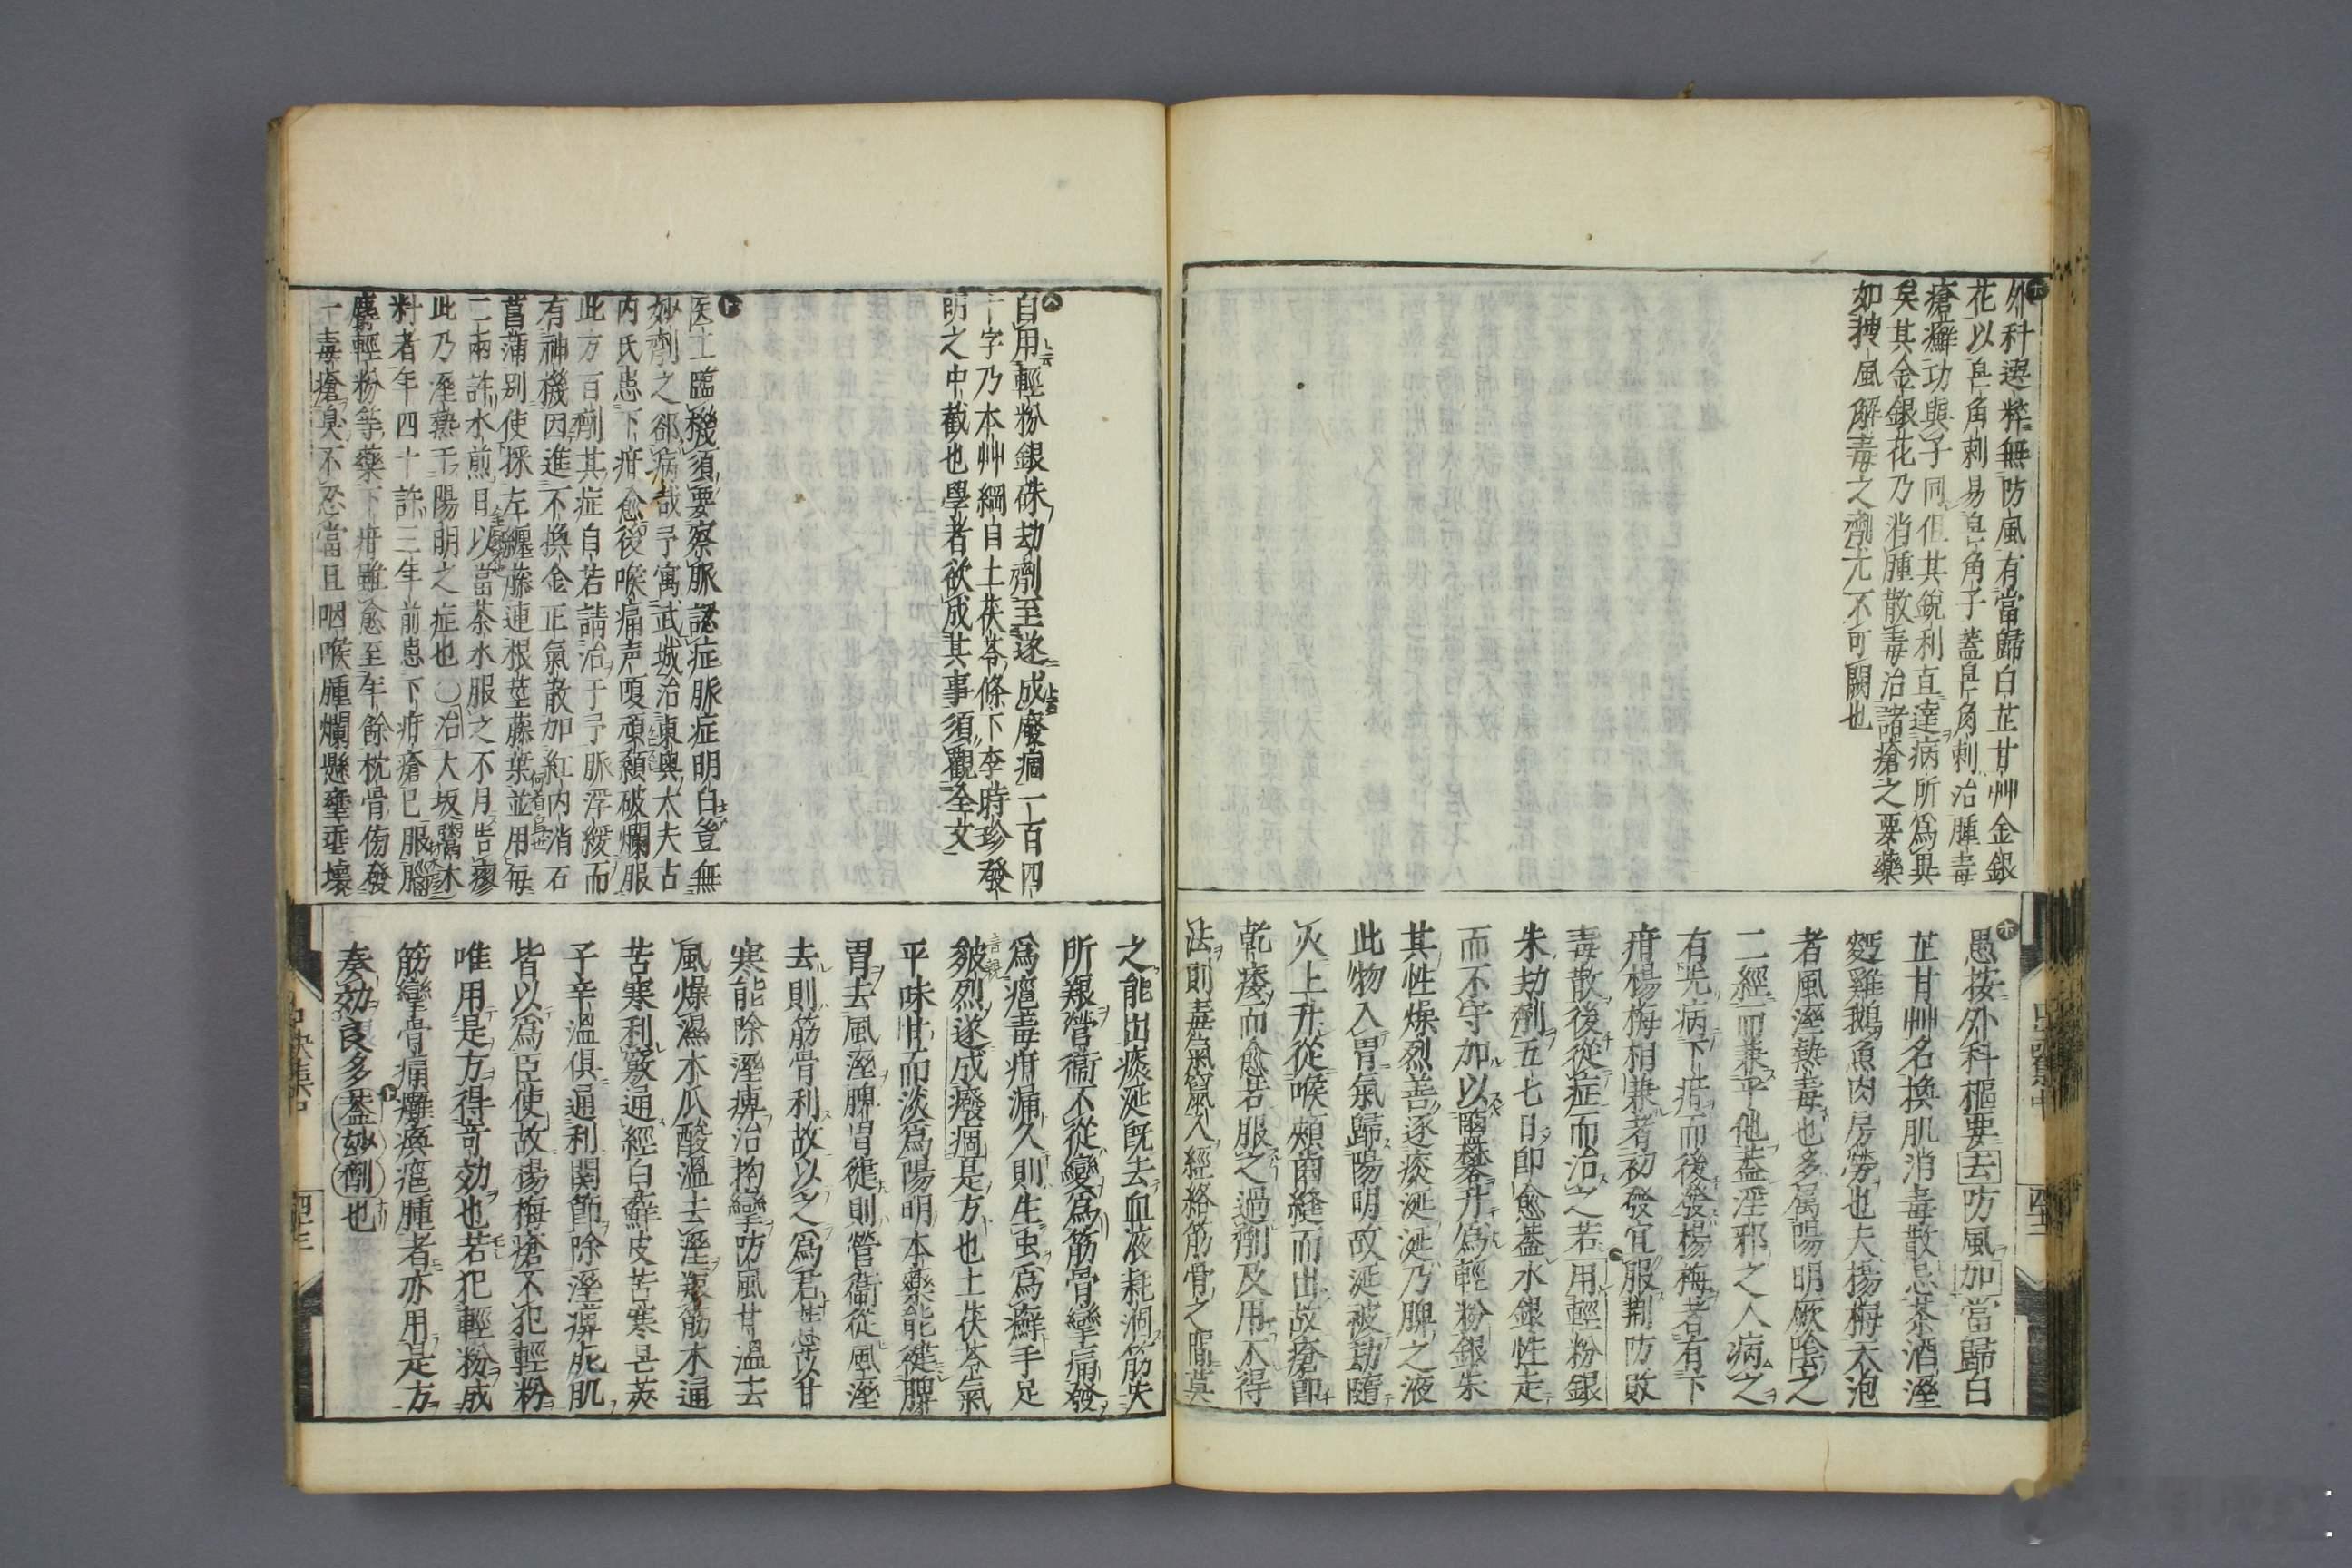 外科選粹無防風有當歸白芷甘艸金銀
花以皂角刺易皂角子蓋皂角刺治腫毒
瘡癬功與子同但其銳利直達病所為異
矣其金銀花乃消腫散毒治諸瘡之要藥
如搜風解毒之劑尤不可闕也
愚按外科樞要去防風加當歸白
芷甘艸名換肌消毒散忌茶酒溼
麪雞鵝魚肉房勞也夫楊梅天泡
者風溼熱毒也多属陽明厥陰之
二經而兼乎他蓋淫邪之人病之
有先病下疳而後發楊梅者有下
疳楊梅相兼者初發宜服荆防敗
毒散後從症而治之若用輕粉銀
朱劫劑五七日即愈蓋水銀性走
而不守加以升為輕粉銀朱
其性燥烈善逐痰涎涎乃脾之液
此物入胃氣歸陽明故涎被劫隨
火上升從喉頰齒縫而出故瘡即
乾痿而愈若服之過劑及用不得
法則毒氣竄入經絡筋骨之間莫
自用輕粉銀硃劫劑至遂成廢痼一百四
十字乃本艸綱目土茯苓條下李時珍發
明之中截也學者欲成其事須觀全文
医士臨機須要察脈認症脈症明白豈無
妙劑之郤病哉予寓武城治東奥太夫古
内氏患下疳愈後喉痛声嗄頑顙破爛服
此方百劑其症自若請治于予脈浮緩而
有神機因進不換金正氣散加紅内消石
菖蒲别使採左纏藤連根莖藤葉並用每
二兩許水煎日以當茶水服之不月告瘳
此乃溼熱于陽明之症也〇治大坂鬻木
料者年四十許三年前患下疳瘡已服腦
麝輕粉等藥下疳雖愈至年餘枕骨傍發
一毒瘡臭不忍當且咽喉腫爛懸壅垂壞
之能出痰涎既去血液耗涸筋失
所養營衞不從變為筋骨攣痛發
為癰毒疳漏久則生虫為癬手足
皴烈遂成癈痼是方也土茯苓氣
平味甘而淡為陽明本藥能健脾
胃去風溼脾胃健則營衞從風溼
去則筋骨利故以之為君薏苡以甘
寒能除溼痺治拘攣防風甘溫去
風燥濕木瓜酸溫去溼緩筋木通
苦寒利竅通經白蘚皮苦寒皂莢
子辛溫俱通利關節除溼痺死肌
皆以為臣使故楊梅瘡不犯輕粉
唯用是方得竒効也若犯輕粉成
筋攣骨痛癱瘓疽腫者亦用是方
奏効良多蓋玅劑也